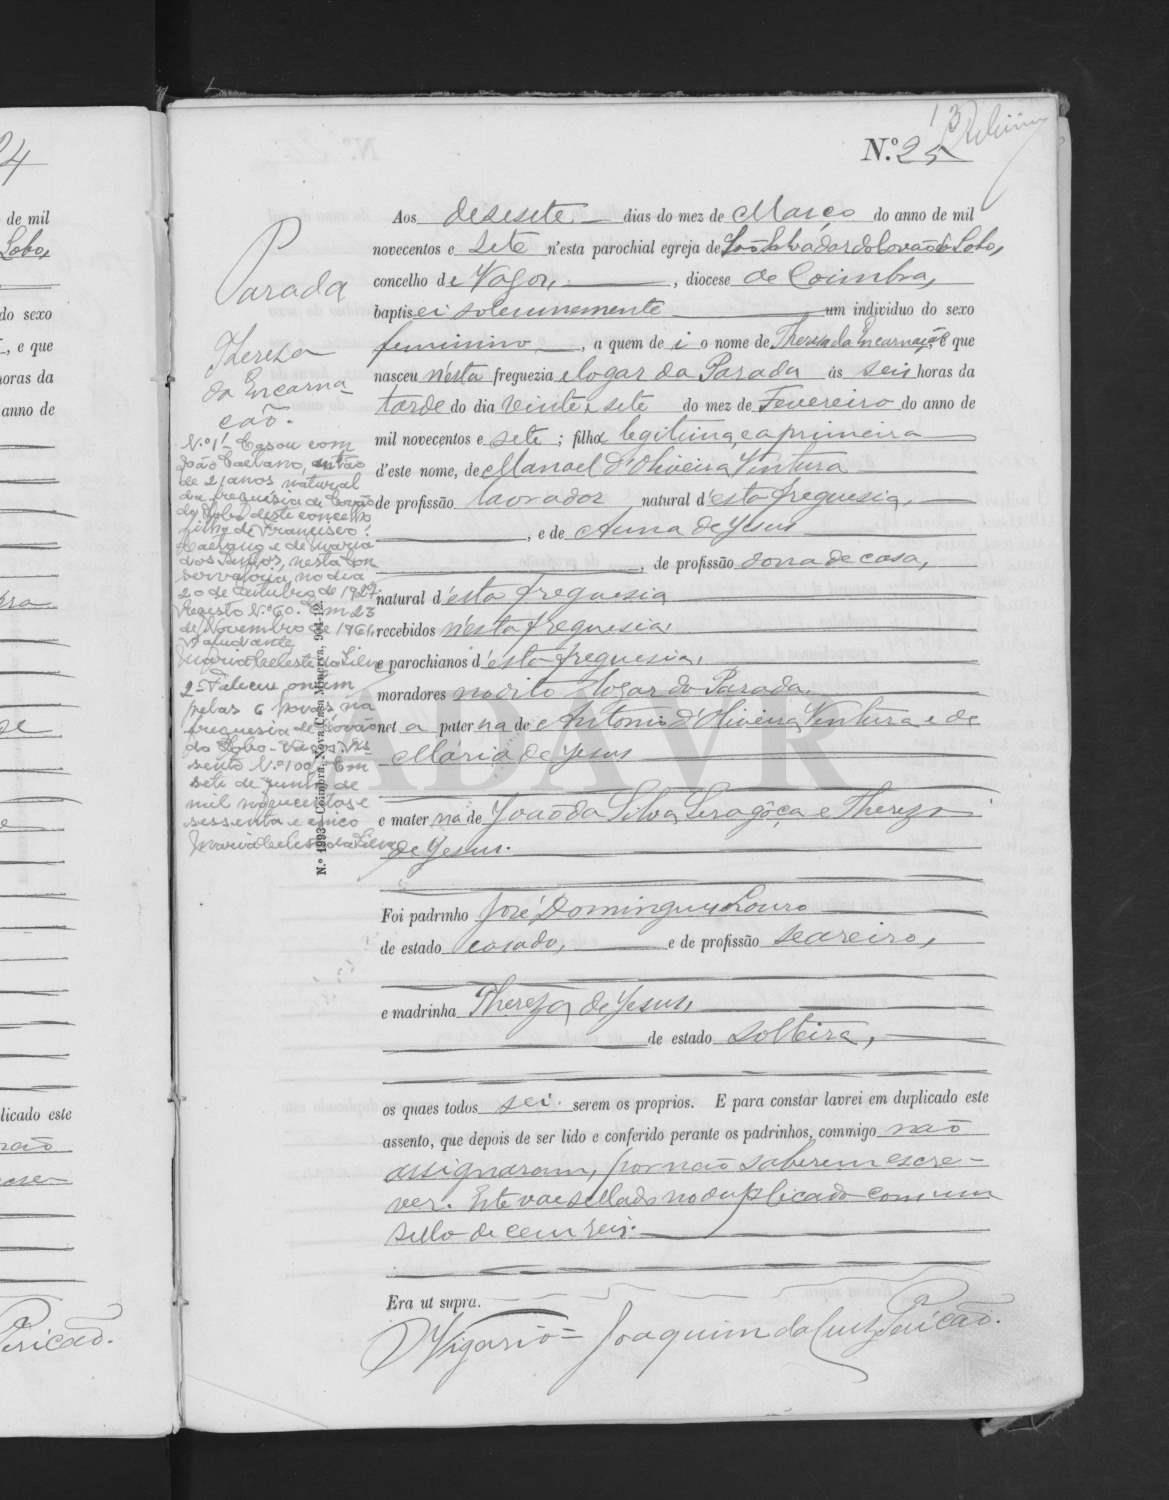 24
de mil
Lobo,
do sexo
, e que
horas da
anno de
licado este
não
13
N.º 25
Parada
Thereza
da Encarna-
ção.
N.º 1 - Casou com
João Caetano, então
de 21 anos natural
da freguesia de Covão
do Lobo deste concelho
filho de Francisco
Caetano e de Maria
dos Santos, nesta con
servatória, no dia
20 de Outubro de 1927.
Registo N.º 60. Em 23
de Novembro de 1961.
O ajudante
Maria Celeste da Silva
2º Faleceu ontem
pelas 6 horas na
freguesia de Covão
do Lobo - Vagos. As
sento N.º 100. Em
sete de Junho de
mil novecentos e
sessenta e cinco
Maria Celeste da Silva
N.º 1993 - Coimbra, Nova Casa Minerva, 904-12
Aos desesete dias do mez de Março do anno de mil
novecentos e sete n'esta parochial egreja de São Salvador do Covão do Lobo,
concelho de Vagos, , diocese de Coimbra,
baptisei solemnemente um individuo do sexo
feminino , a quem dei o nome de Thereza da Encarnação e que
nasceu n'esta freguezia e logar da Parada ás seis horas da
tarde do dia vinte e sete do mez de Fevereiro do anno de
mil novecentos e sete ; filha legitima, e a primeira
d'este nome, de Manoel d'Oliveira Ventura
de profissão lavrador natural d'esta freguesia,
, e de Anna de Jesus
, de profissão dona de casa,
natural d'esta freguesia
recebidos n'esta freguesia,
e parochianos d'esta freguesia,
moradores no dito logar da Parada.
neta paterna de Antonio d'Oliveira Ventura e de
Maria de Jesus
e materna de João da Silva Seragôça e Thereza
de Jesus.
Foi padrinho José Domingues Louro
de estado casado, e de profissão seareiro,
e madrinha Thereza de Jesus,
de estado solteira,
os quaes todos sei serem os proprios. E para constar lavrei em duplicado este
assento, que depois de ser lido e conferido perante os padrinhos, commigo não
assignaram, por não saberem escre-
ver. Este vae sellado no duplicado com um
sello de cem reis.
Era ut supra.
O Vigario = Joaquim da Luz Pericão.
ADAVR